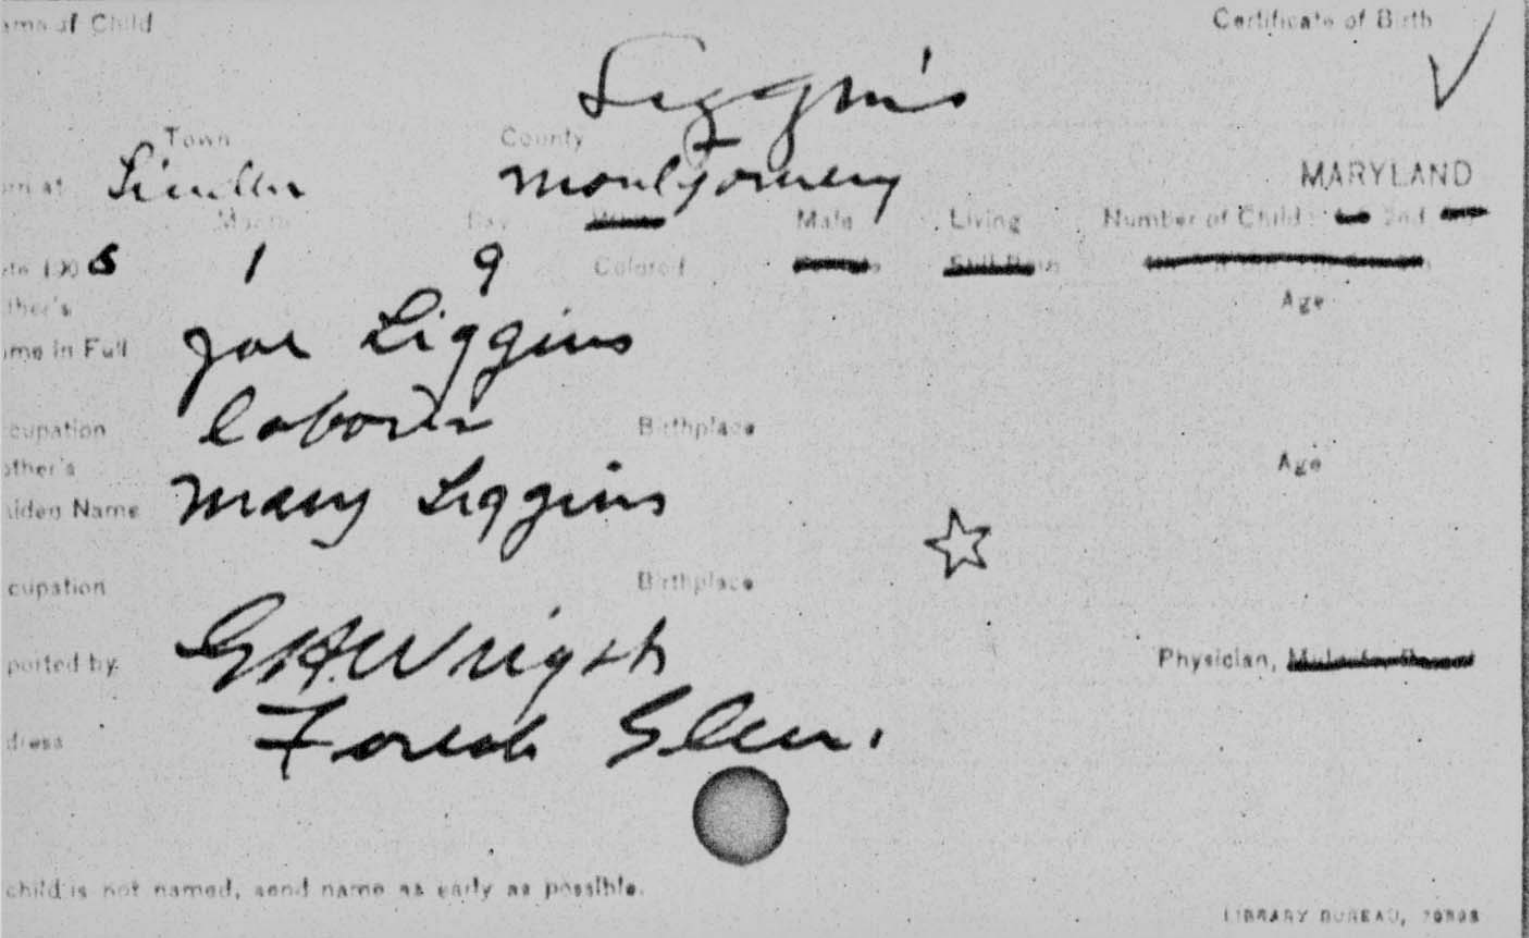 ame of Child Certificate of Birth
Liggin's
Town County
rn at Linden Montgomery MARYLAND
Month Day White Male Living Number of Child: 1st 2nd
ate 190 5 1 9 Colored Female Still Born
ther's Age
ame in Full Joe Liggins
cupation laborer Birthplace
other's Age
aiden Name Mary Liggins
cupation Birthplace
ported by G H Wright Physician, Midwife, Parent
dress Forest Glen.
child is not named, send name as early as possible.
LIBRARY BUREAU,